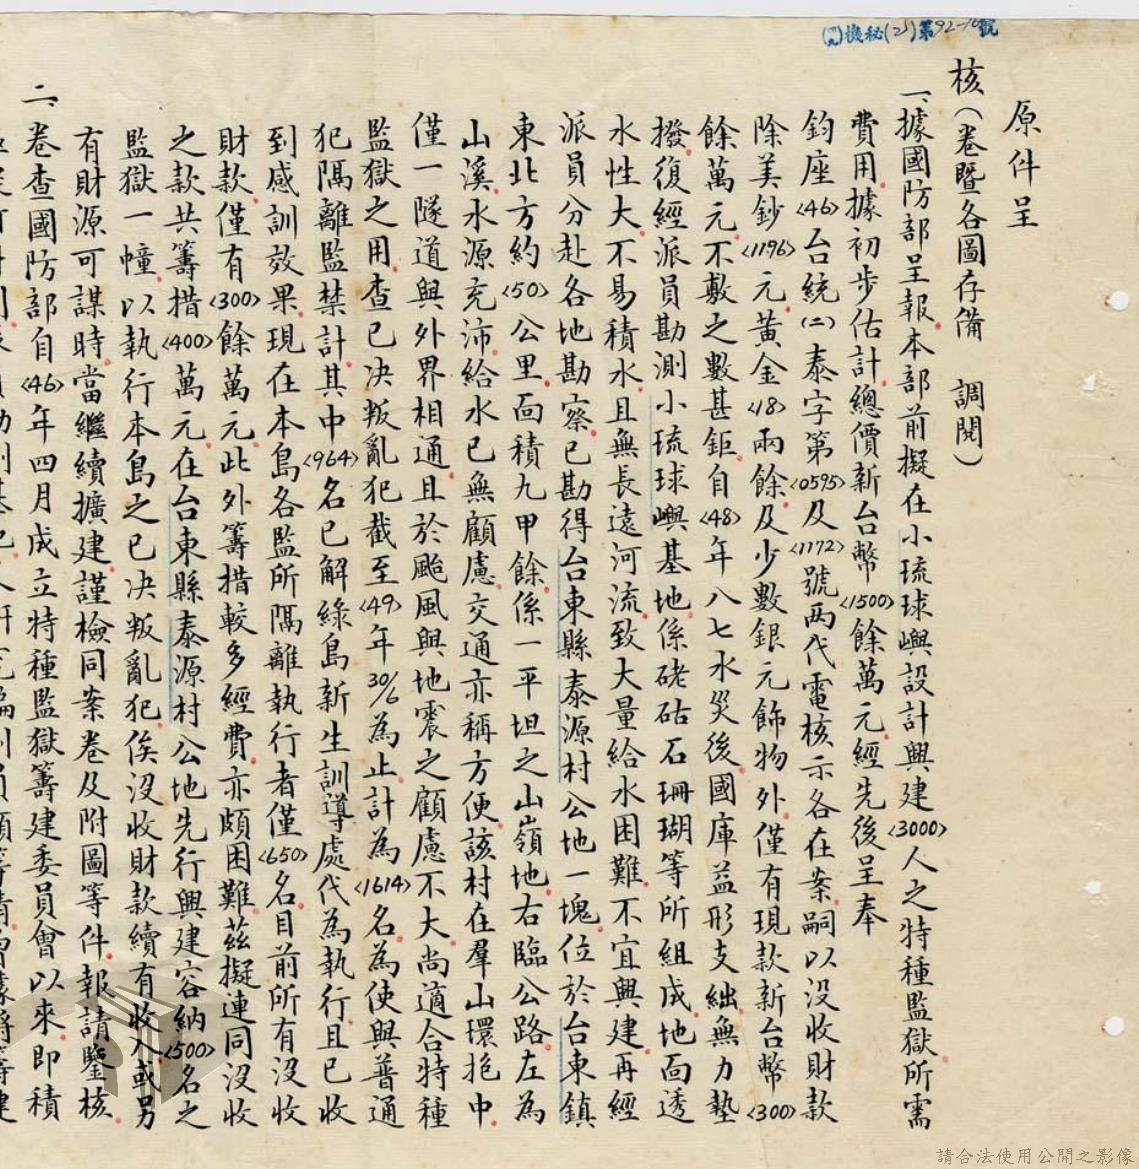 (49)機秘(乙)第92-10號
原件呈
核（卷暨各圖存備　調閱）
一、據國防部呈報本部前擬在小琉球嶼設計興建<3000>人之特種監獄所需
費用據初步估計總價新台幣<1500>餘萬元經先後呈奉
鈞座<46>台統(二)泰字第<0595>及<1172>號兩代電核示各在案嗣以沒收財款
除美鈔<1196>元黃金<18>兩餘及少數銀元飾物外僅有現款新台幣<300>
餘萬元不敷之數甚鉅自<48>年八七水災後國庫益形支絀無力墊
撥復經派員勘測小琉球嶼基地係硓𥑮石珊瑚等所組成地面透
水性大不易積水且無長遠河流致大量給水困難不宜興建再經
派員分赴各地勘察已勘得台東縣泰源村公地一塊位於台東鎮
東北方約<50>公里面積九甲餘係一平坦之山嶺地右臨公路左為
山溪水源充沛給水已無顧慮交通亦稱方便該村在羣山環抱中
僅一隧道與外界相通且於颱風與地震之顧慮不大尚適合特種
監獄之用查已決叛亂犯截至<49>年30/6為止計為<1614>名為使與普通
犯隔離監禁計其中<964>名已解綠島新生訓導處代為執行且已收
到感訓效果現在本島各監所隔離執行者僅<650>名目前所有沒收
財款僅有<300>餘萬元此外籌措較多經費亦頗困難茲擬連同沒收
之款共籌措<400>萬元在台東縣泰源村公地先行興建容納<500>名之
監獄一幢以執行本島之已決叛亂犯俟沒收財款續有收入或另
有財源可謀時當繼續擴建謹檢同案卷及附圖等件報請鑒核
二、卷查國防部自<46>年四月成立特種監獄籌建委員會以來即積
請合法使用公開之影像